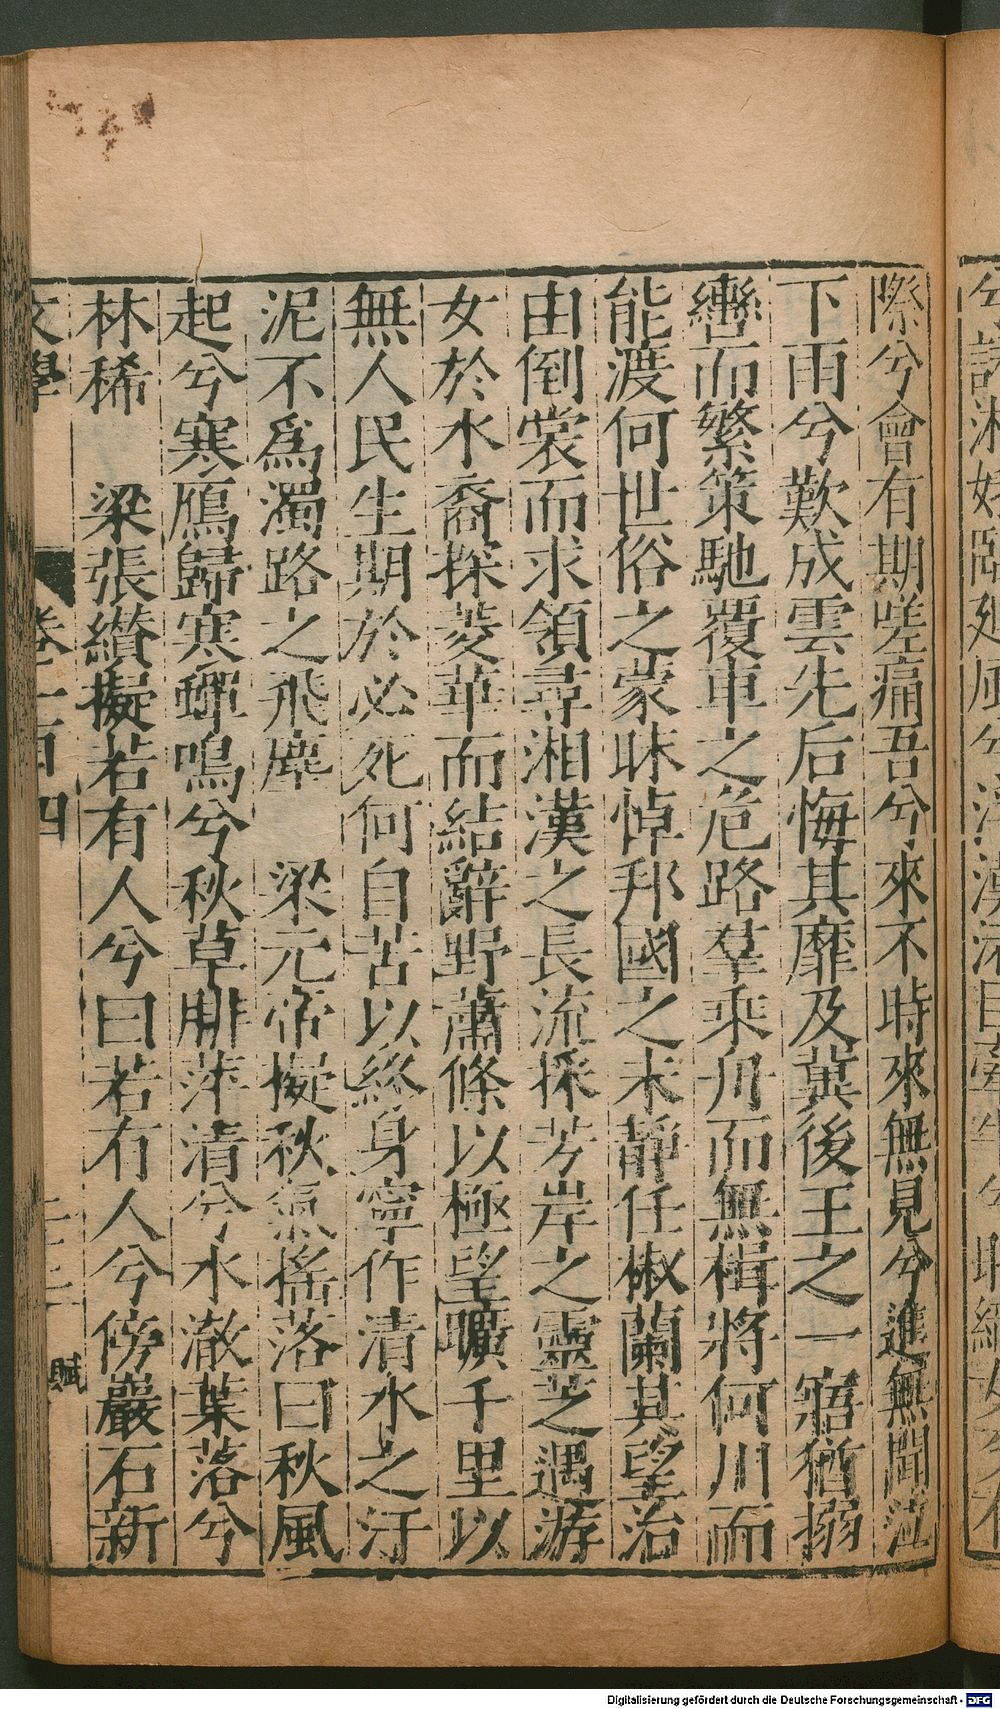 際兮會有期嗟痛吾兮來不時來無見兮進無聞泣
下雨兮歎成雲先后悔其靡及冀後王之一寤猶搦
轡而繁策馳覆車之危路羣乘舟而無楫將何川而
能渡何世俗之蒙昧悼邦國之未靜任椒蘭其望治
由倒裳而求領尋湘漢之長流採芳岸之靈芝遇游
女於水裔探菱華而結辭野蕭條以極望曠千里以
無人民生期於必死何自苦以終身寧作清水之汙
泥不爲濁路之飛塵　梁元帝擬秋氣搖落曰秋風
起兮寒鴈歸寒蟬鳴兮秋草腓萍清兮水澈葉落兮
林稀　梁張纘擬若有人兮曰若有人兮傍巖石新
文學　卷一百四　賦
Digitalisierung gefördert durch die Deutsche Forschungsgemeinschaft - DFG